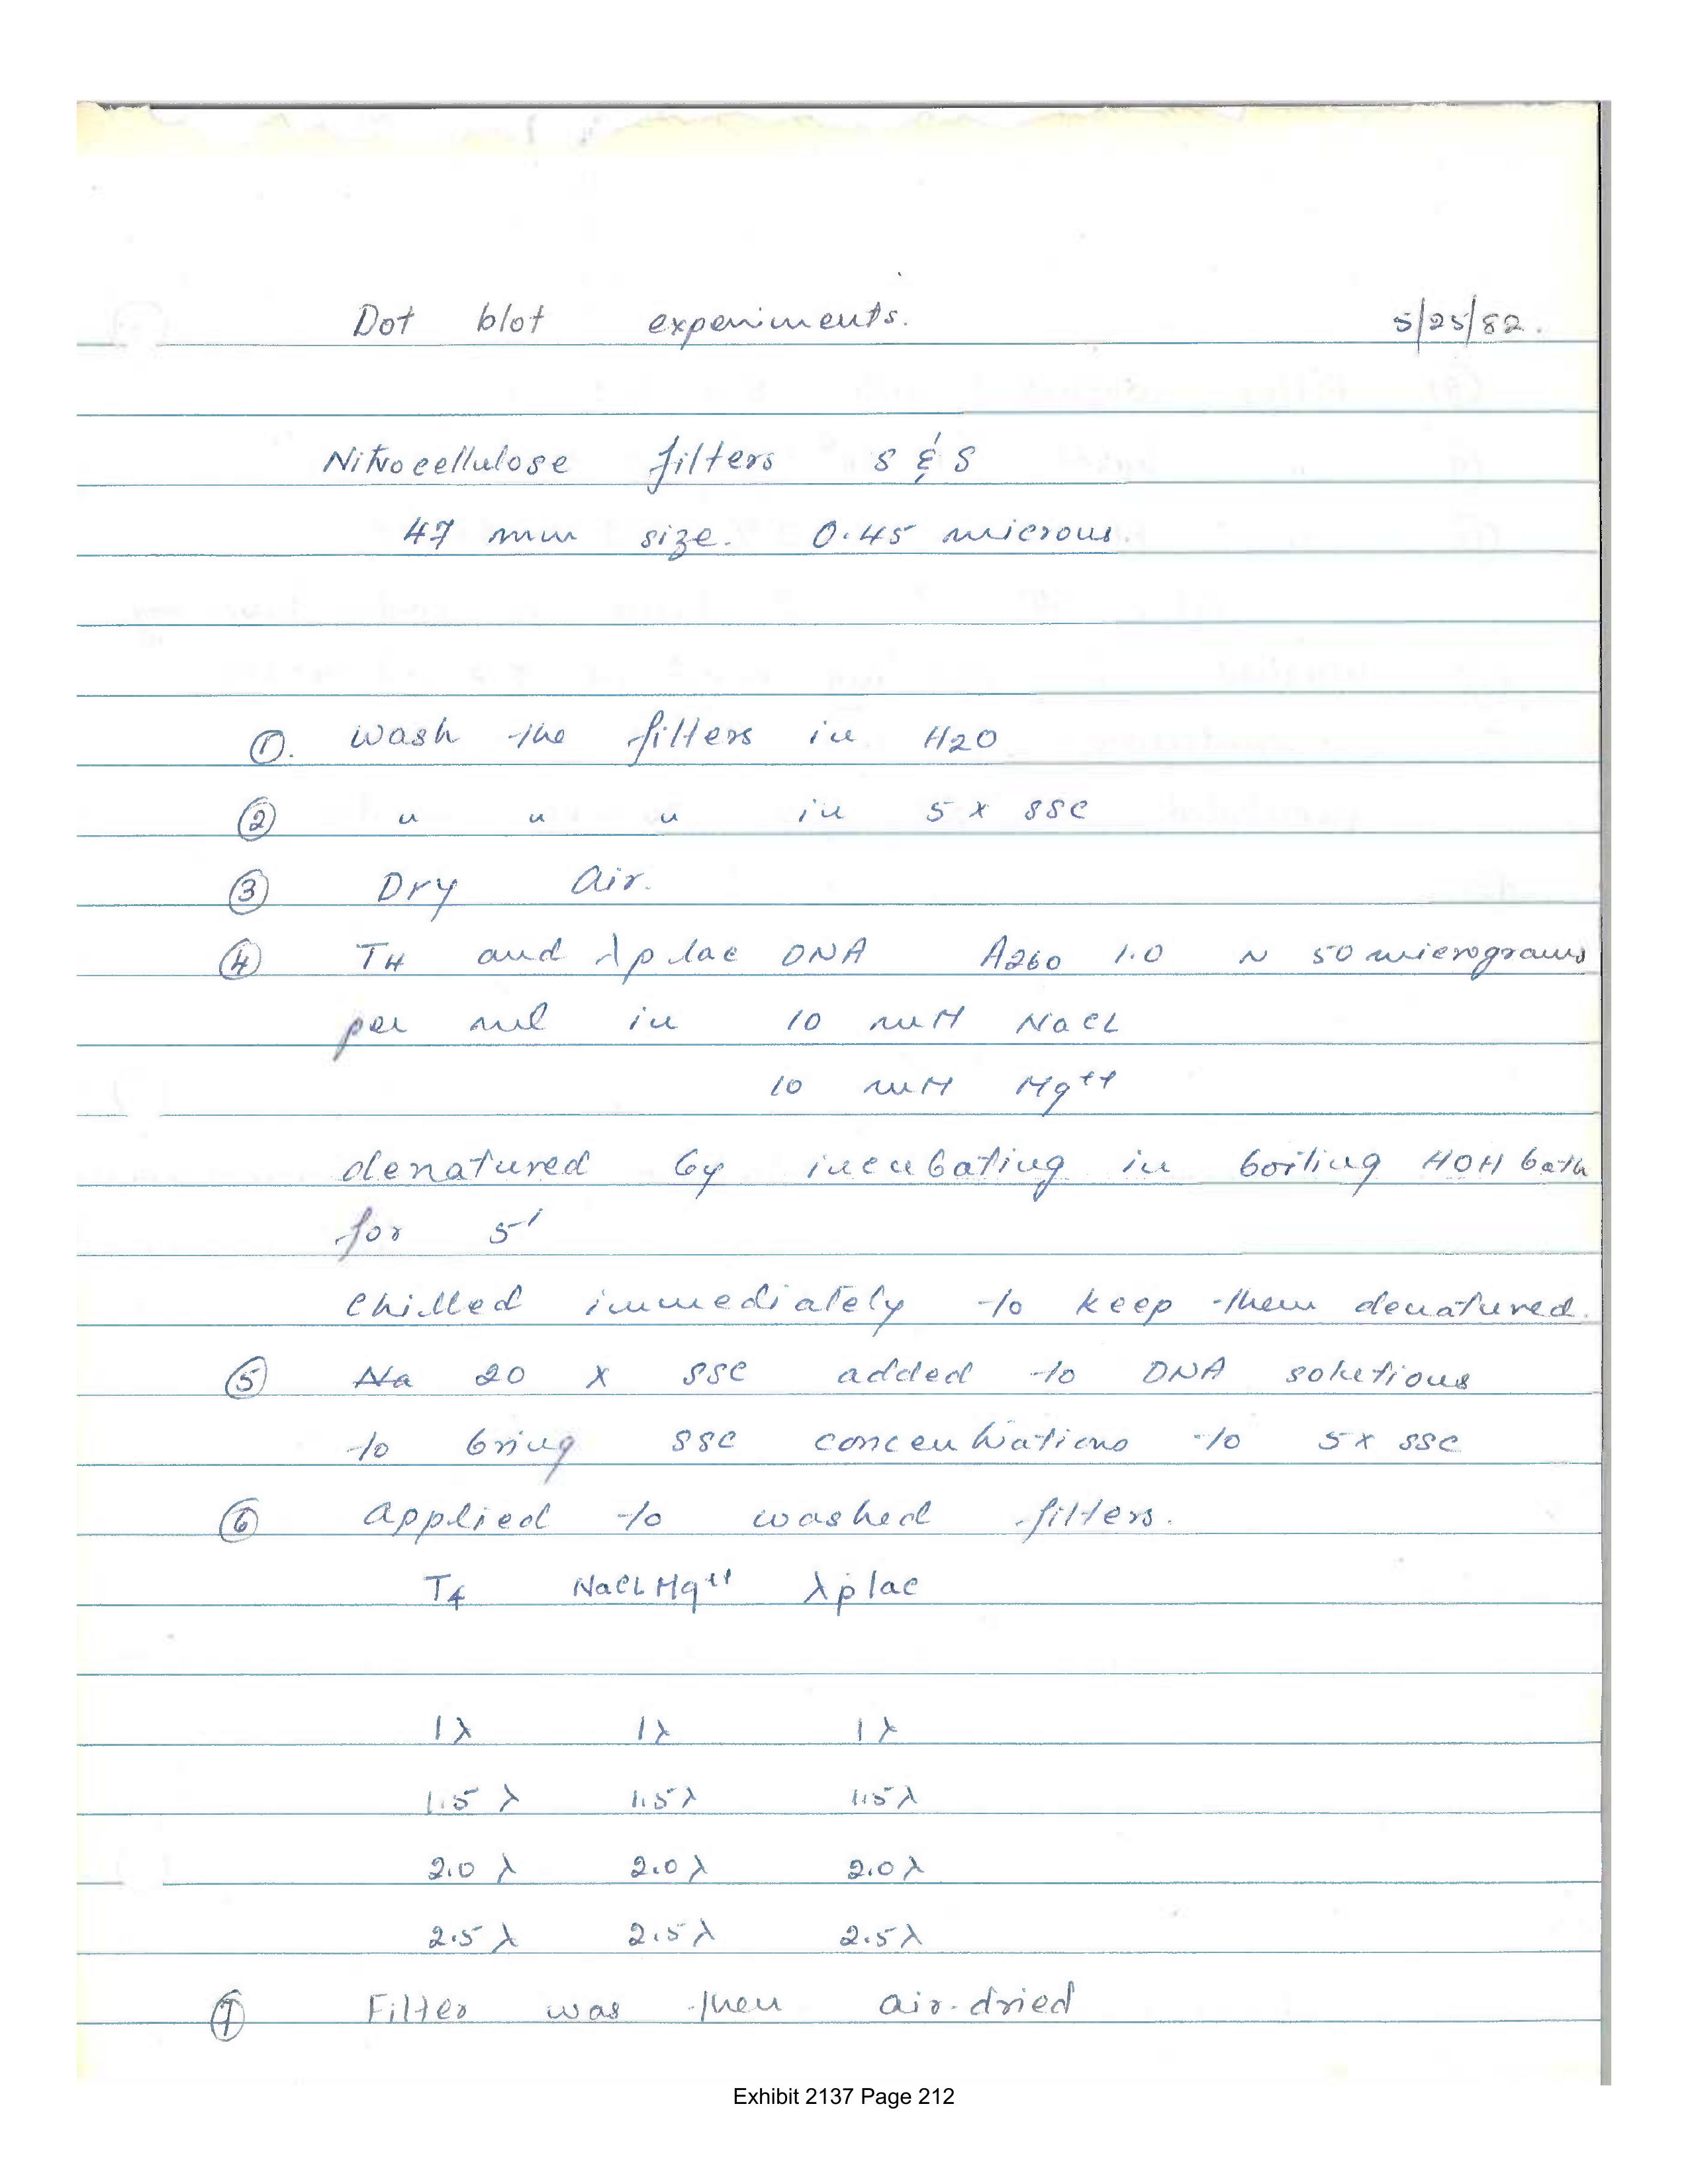 Dot blot experiments. 5/25/82.
Nitrocellulose filters S & S
47 mm size. 0.45 microns.
①. Wash the filters in H2O
② " " " in 5 x SSC
③ Dry Air.
④ T4 and λplac DNA A260 1.0 ~ 50 micrograms
per ml in 10 mM NaCl
10 mM Mg++
denatured by incubating in boiling HOH bath
for 5'
Chilled immediately to keep them denatured.
⑤ Na 20 x SSC added to DNA solutions
to bring SSC concentrations to 5x SSC
⑥ Applied to washed filters.
T4 NaCl Mg++ λplac
1λ 1λ 1λ
1.5 λ 1.5λ 1.5λ
2.0 λ 2.0λ 2.0λ
2.5 λ 2.5λ 2.5λ
⑦ Filter was then air-dried
Exhibit 2137 Page 212